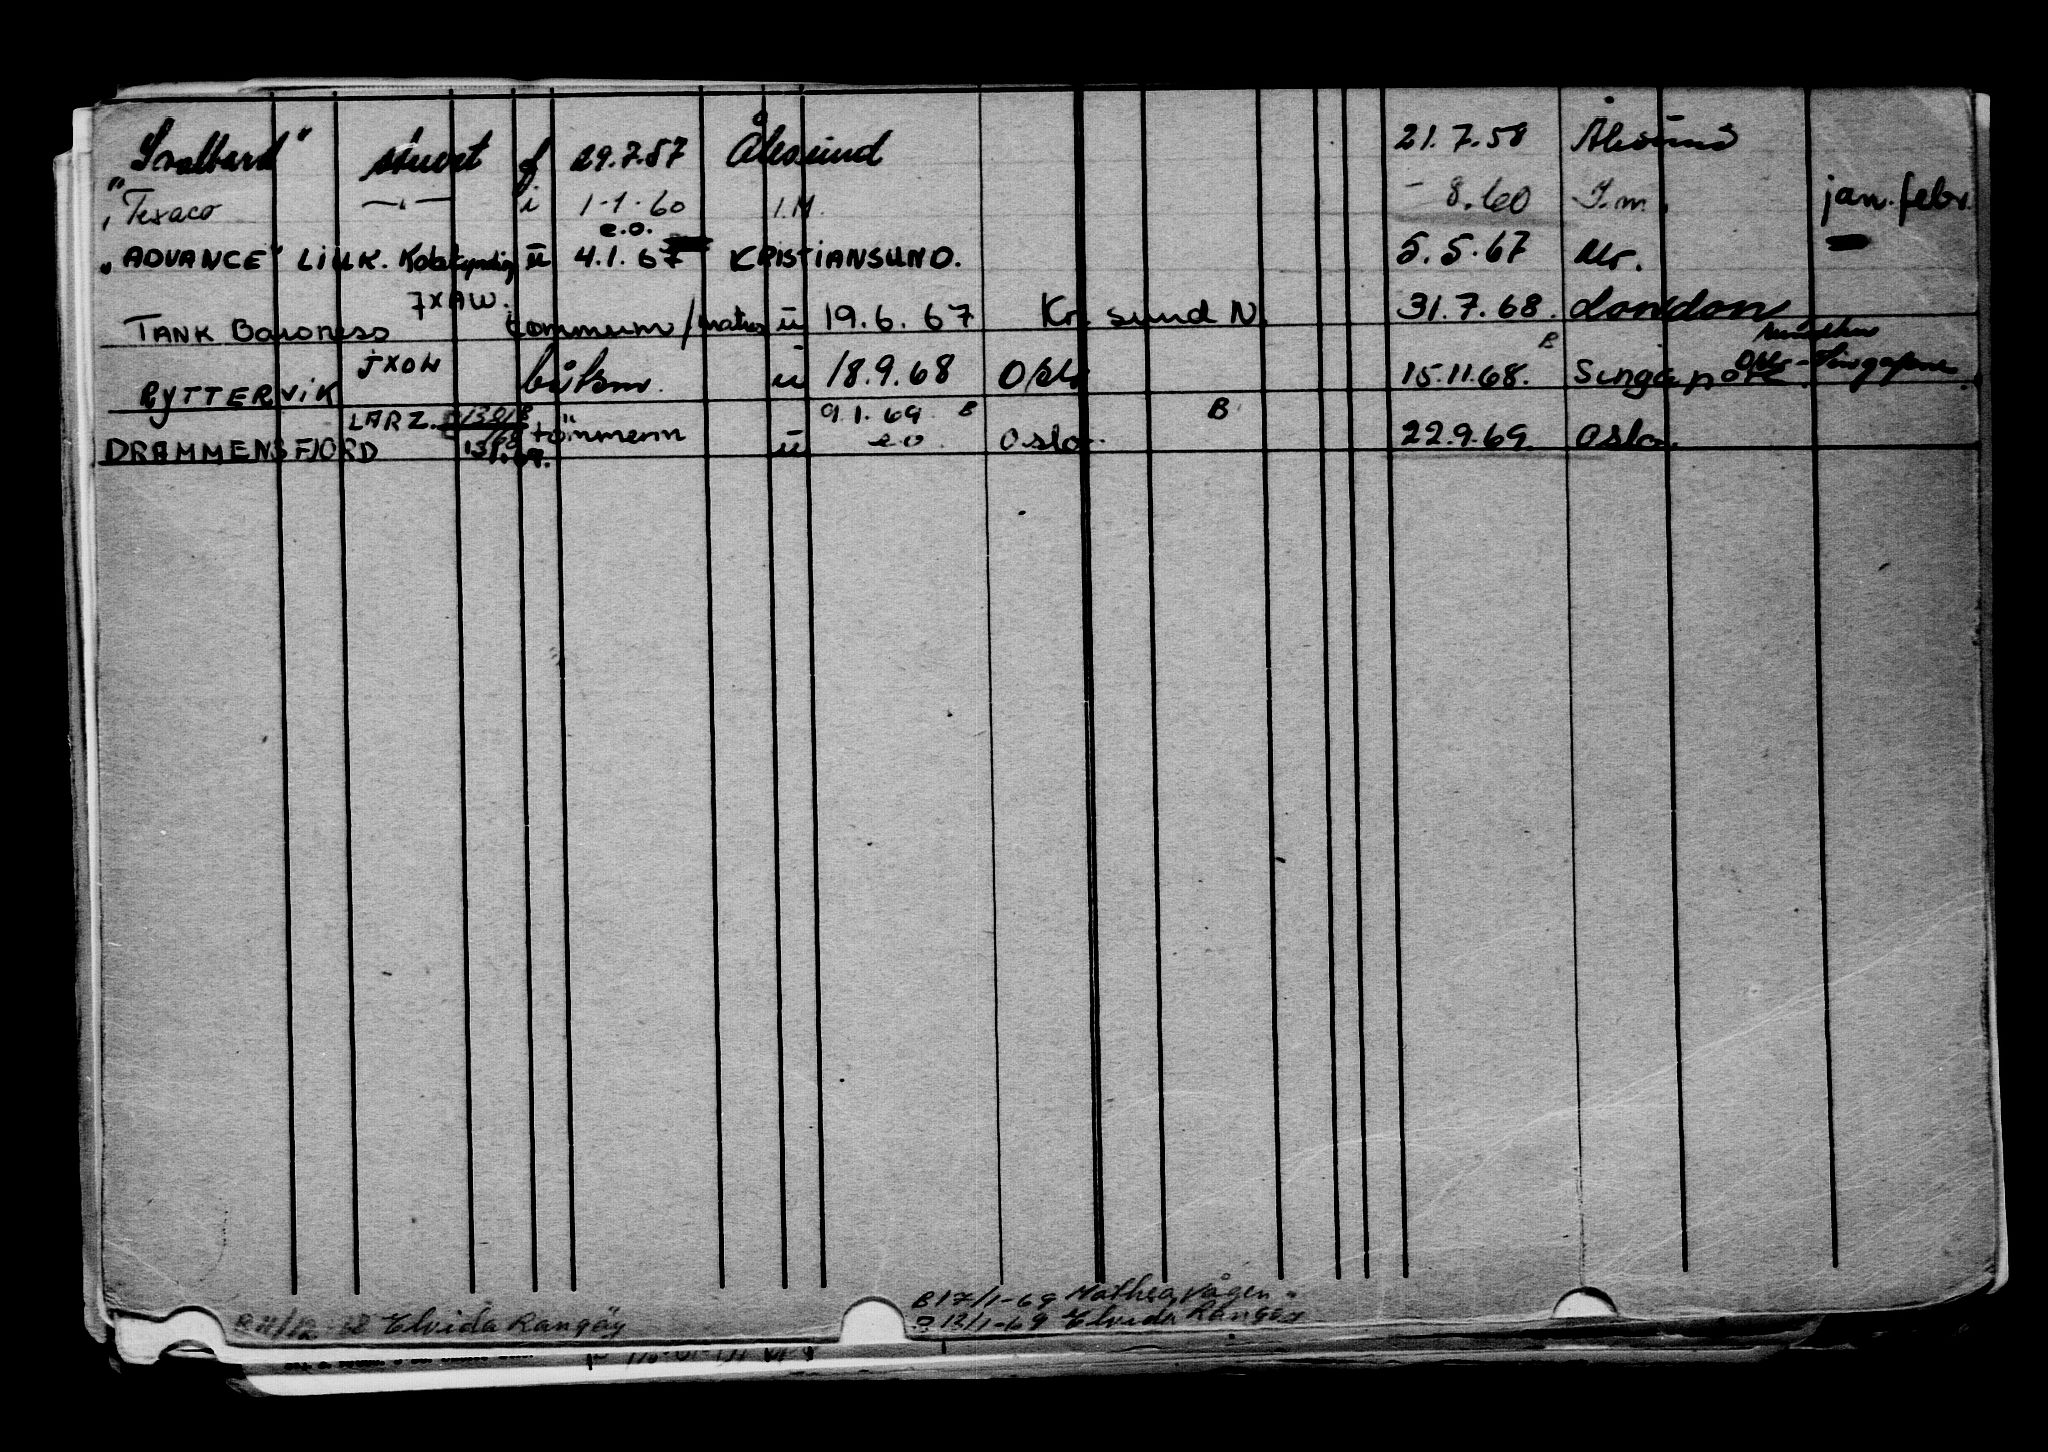 "Svalbard" stuert f 29.7.57 Ålesund 21.7.58 Ålesund
"Texaco —"— i 1-1-60 I.M. - 8.60 I.m. jan. febr.
e.o.
"ADVANCE" LIUK. ü 4.1.67 KRISTIANSUND. 5.5.67
JXAW.
TANK Baroness tømmerm/matros ü 19.6.67 Kr. sund N. 31.7.68. London
B
JXOW
RYTTERVIK båtsm. ü 18.9.68 Oslo 15.11.68. Singapore Oslo - Singapore.
LARZ. 9.1.69 B B
DRAMMENSFJORD tømmerm ü e.o. Oslo. 22.9.69. Oslo.
B 17/1-69
Elvida Rangøy 13/1-69 Elvida Rangøy